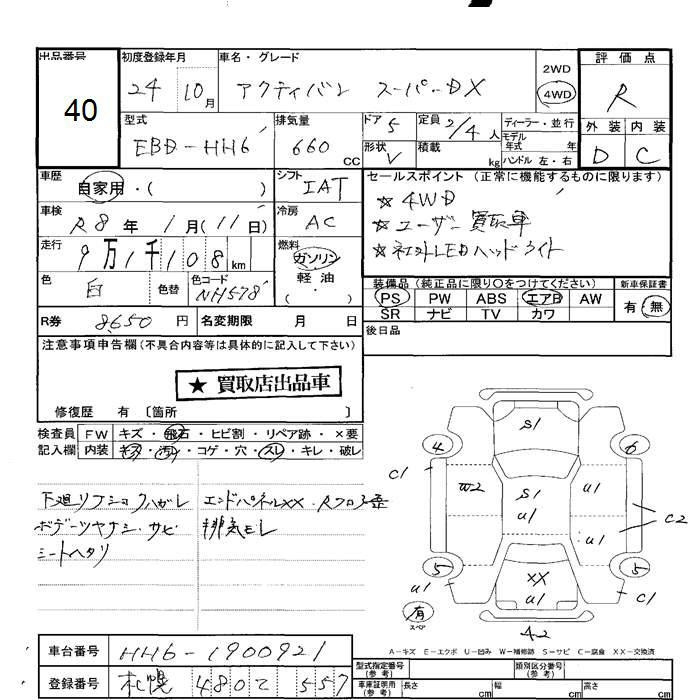 出品番号 初度登録年月 車名・グレード 評価点
40 24 10月 アクティバン スーパーDX 2WD 4WD R
型式 排気量 ドア 5 定員 2/4人 ディーラー・並行 外装 内装
EBD-HH6 660 CC 形状 V 積載 kg モデル年式 年 ハンドル 左・右 D C
車歴 自家用・( ) シフト IAT セールスポイント (正常に機能するものに限ります)
車検 R8年 1月(11日) 冷房 AC ☆4WD
☆ユーザー買取車
走行 9万1千108km 燃料 ガソリン 軽油 ( ・ ) ☆社外LEDヘッドライト
色 白 色替 色コード NH578
装備品 (純正品に限り○をつけてください) 新車保証書
PS PW ABS エアB AW 有・無
SR ナビ TV カワ
R券 8650円 名変期限 月 日 後日品
注意事項申告欄(不具合内容等は具体的に記入して下さい)
★ 買取店出品車
修復歴 有 〔箇所 〕
検査員 FW キズ・飛石・ヒビ割・リペア跡・×要
記入欄 内装 キズ・汚レ・コゲ・穴・スレ・キレ・破レ
下廻リ
エンドパネルXX・Rフロア
ボデーツヤナシ・サビ 排気モレ
シートヘタリ
S1
4 6
C1 W2 S1 U1 U1
C2
U1
5 5
U1 XX U1 C1
有 スペア
42
A-キズ E-エクボ U-凹み W-補修跡 S-サビ C-腐食 XX-交換済
車台番号 HH6-1900921
型式指定番号(参考) 類別区分番号(参考)
登録番号 札幌 480 て 557
車庫証明用(参考) 長さ cm 幅 cm 高さ cm